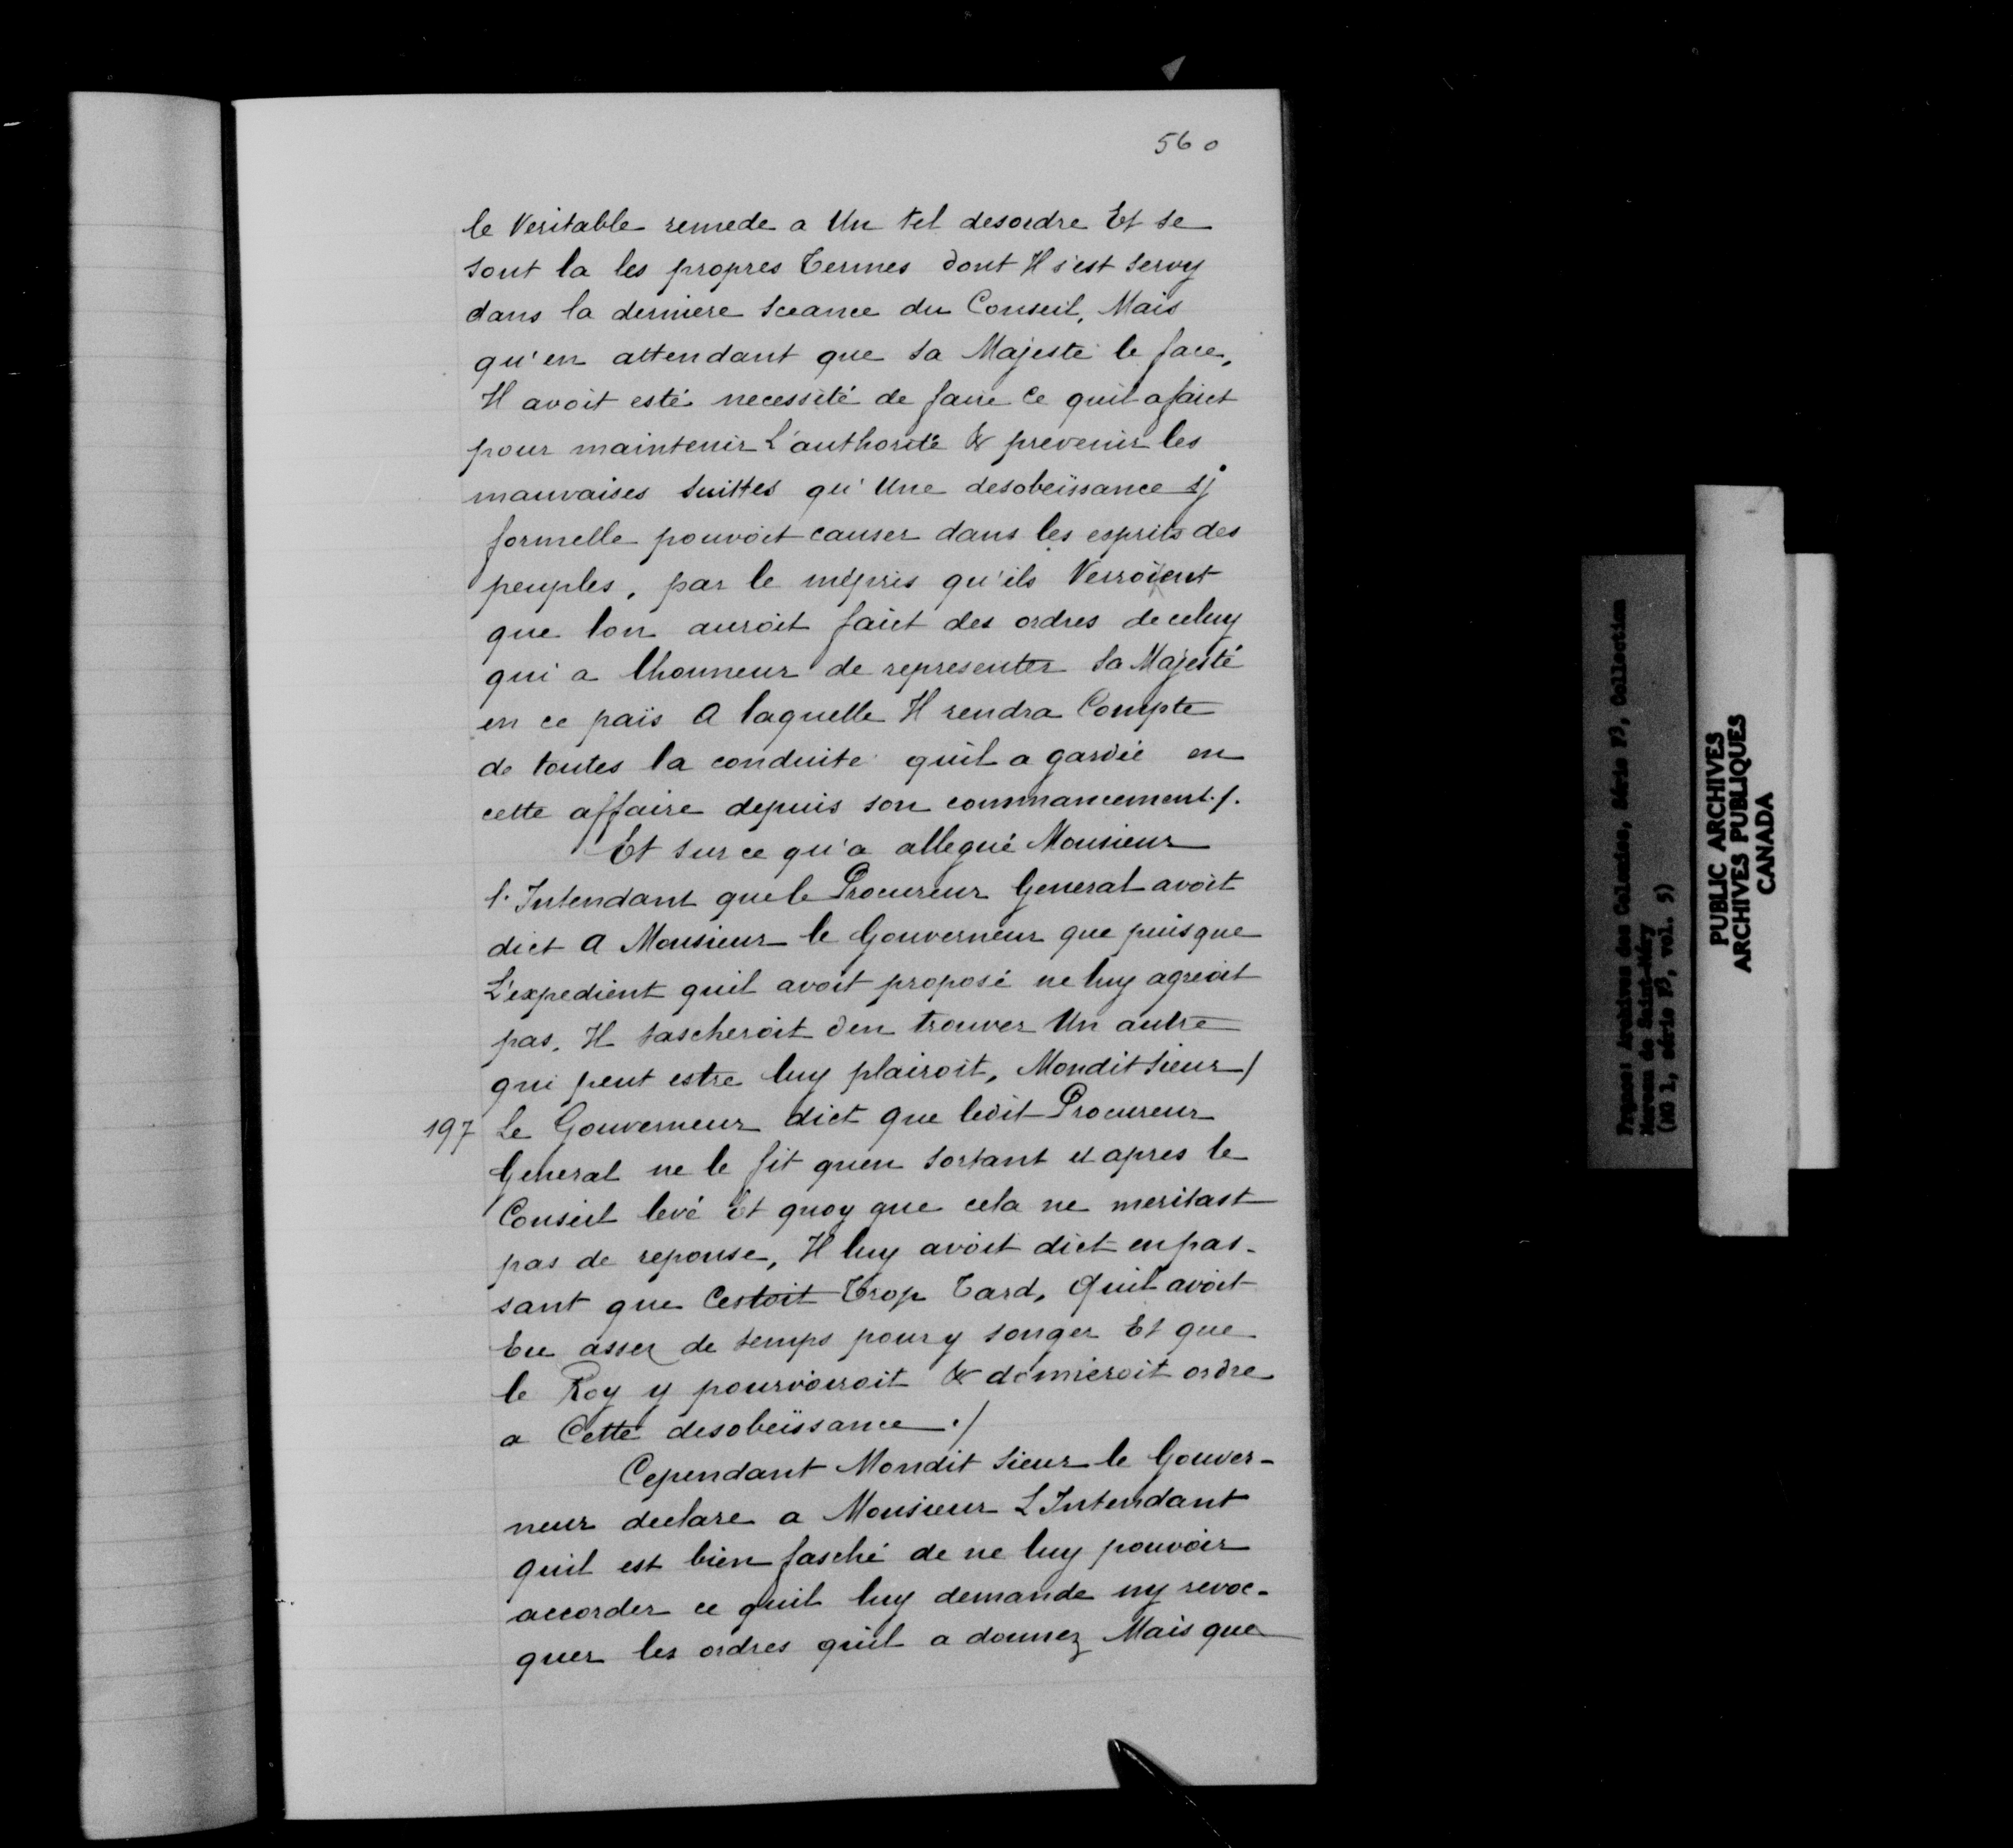 560
le Veritable remede a Un tel desordre Et se
sont la les propres Termes dont Il s'est servy
dans la derniere Sceance du Conseil, Mais
qu'en attendant que Sa Majesté le face,
Il avoit esté necessité de faire Ce quil a faict
pour maintenir L'authorité & prevenir les
mauvaises Suittes qu'Une desobeïssance sj
formelle pouvoit causer dans les esprits des
peuples, par le mépris qu'ils Verroient
que lon auroit faict des ordres de celuy
qui a lhonneur de representer Sa Majesté
en ce païs A laquelle Il rendra Compte
de toutes la conduite quil a gardée en
cette affaire depuis son commancement./.
Et sur ce qu'a allegué Monsieur
l'Intendant que le Procureur General avoit
dict A Monsieur le Gouverneur que puisque
L'expedient quil avoit proposé ne luy agreoit
pas, Il tascheroit den trouver Un autre
qui peut estre luy plairoit, Mondit Sieur/
197 Le Gouverneur dict que ledit Procureur
General ne le fit quen sortant et apres le
Conseil levé Et quoy que cela ne meritast
pas de reponse, Il luy avoit dict en pas-
sant que Cestoit Trop Tard, Quil avoit
Eu assez de temps pour y songer Et que
le Roy y pourvoiroit & donneroit ordre
a Cette desobeïssance ./
Cependant Mondit Sieur le Gouver-
neur declare a Monsieur L'Intendant
quil est bien fasché de ne luy pouvoir
accorder ce quil luy demande ny revoc-
quer les ordres quil a donnez Mais que
France: Archives des Colonies, Série F3, Collection
Moreau de Saint-Méry
(MG 1, série F3, vol. 5)
PUBLIC ARCHIVES
ARCHIVES PUBLIQUES
CANADA